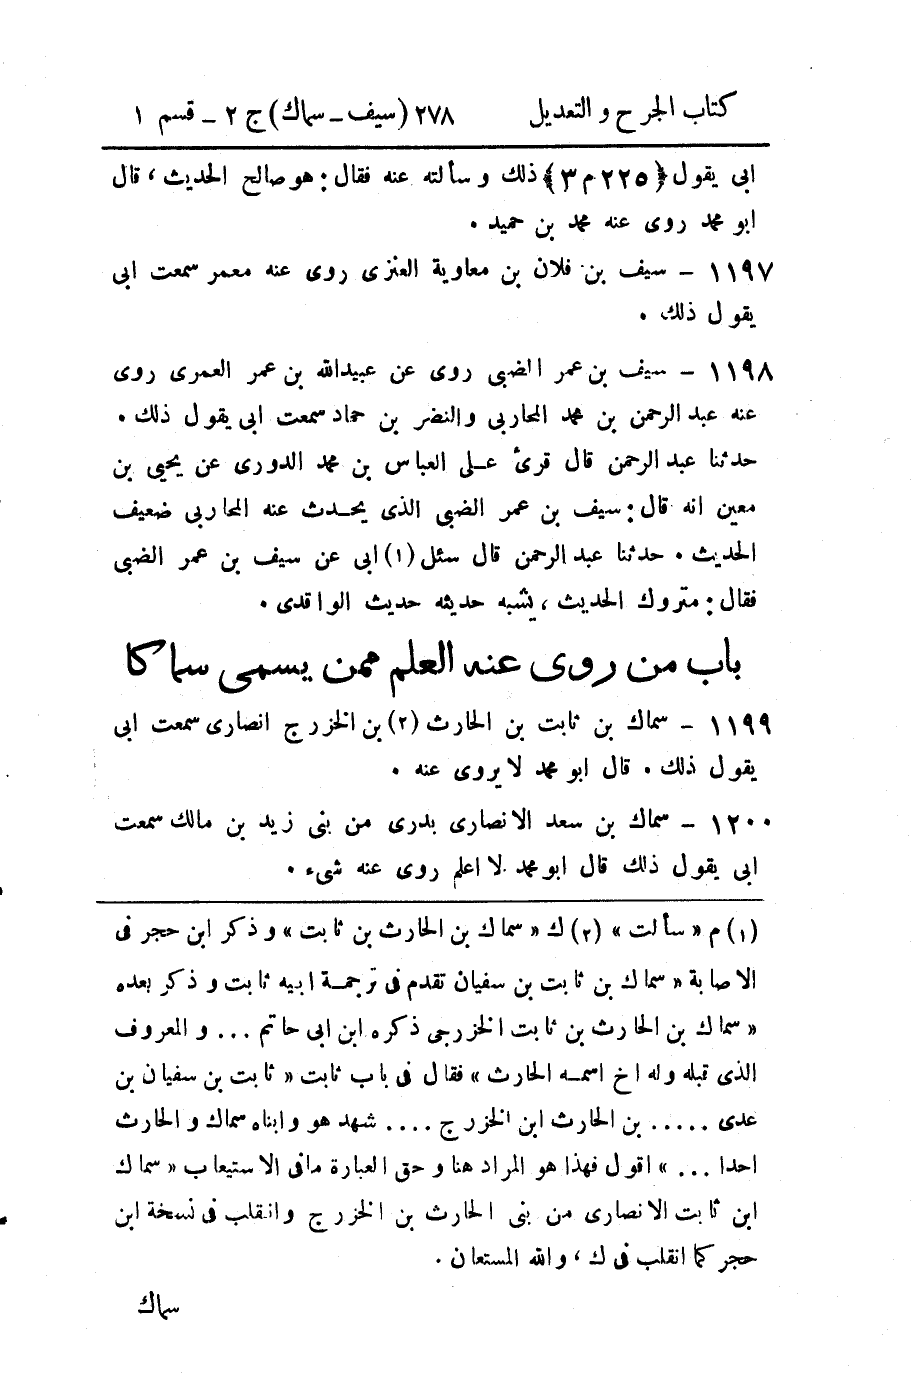 كتاب الجرح والتعديل ٢٧٨ (سيف - سماك) ج ٢ - قسم ١
ابى يقول ﴿٢٢٥ م ٣﴾ ذلك وسألته عنه فقال: هو صالح الحديث ، قال
ابو محمد روى عنه محمد بن حميد .
١١٩٧ - سيف بن فلان بن معاوية العنزى روى عنه معمر سمعت ابى
يقول ذلك .
١١٩٨ - سيف بن عمر الضبى روى عن عبيدالله بن عمر العمرى روى
عنه عبد الرحمن بن محمد المحاربى والنضر بن حماد سمعت ابى يقول ذلك .
حدثنا عبد الرحمن قال قرئ على العباس بن محمد الدورى عن يحيى بن
معين انه قال: سيف بن عمر الضبى الذى يحدث عنه المحاربى ضعيف
الحديث . حدثنا عبد الرحمن قال سئل (١) ابى عن سيف بن عمر الضبى
فقال: متروك الحديث ، يشبه حديثه حديث الواقدى .
باب من روى عنه العلم ممن يسمى سماكا
١١٩٩ - سماك بن ثابت بن الحارث (٢) بن الخزرج انصارى سمعت ابى
يقول ذلك . قال ابو محمد لا يروى عنه .
١٢٠٠ - سماك بن سعد الانصارى بدرى من بنى زيد بن مالك سمعت
ابى يقول ذلك قال ابو محمد لا اعلم روى عنه شىء .
(١) م « سألت » (٢) ك « سماك بن الحارث بن ثابت » وذكر ابن حجر فى
الاصابة « سماك بن ثابت بن سفيان تقدم فى ترجمة ابيه ثابت وذكر بعده
« سماك بن الحارث بن ثابت الخزرجى ذكره ابن ابى حاتم ... والمعروف
الذى قبله وله اخ اسمه الحارث » فقال فى باب ثابت « ثابت بن سفيان بن
عدى ..... بن الحارث ابن الخزرج .... شهد هو وابناه سماك والحارث
احدا ... » اقول فهذا هو المراد هنا وحق العبارة ما فى الاستيعاب « سماك
ابن ثابت الانصارى من بنى الحارث بن الخزرج وانقلب فى نسخة ابن
حجر كما انقلب فى ك ، والله المستعان .
سماك